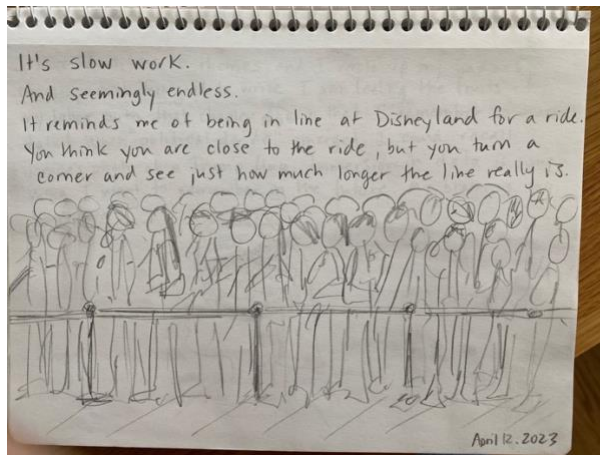 It's slow work.
And seemingly endless.
It reminds me of being in line at Disneyland for a ride.
You think you are close to the ride, but you turn a
corner and see just how much longer the line really is.
April 12. 2023